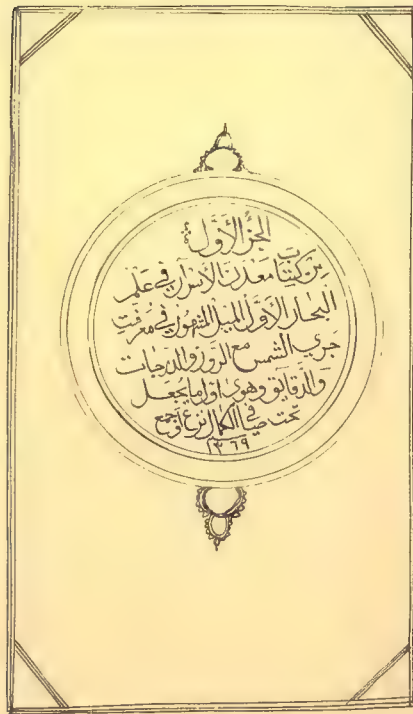 الجزء الأوّل
من كتاب معدن الأسرار في علم
البحار الأوّل الميل المشهور في معرفت
جري الشمس مع الروز والدرجات
والدقايق وهو أول ما يجعل
تحت في الكمال جمع
١٣٦٩